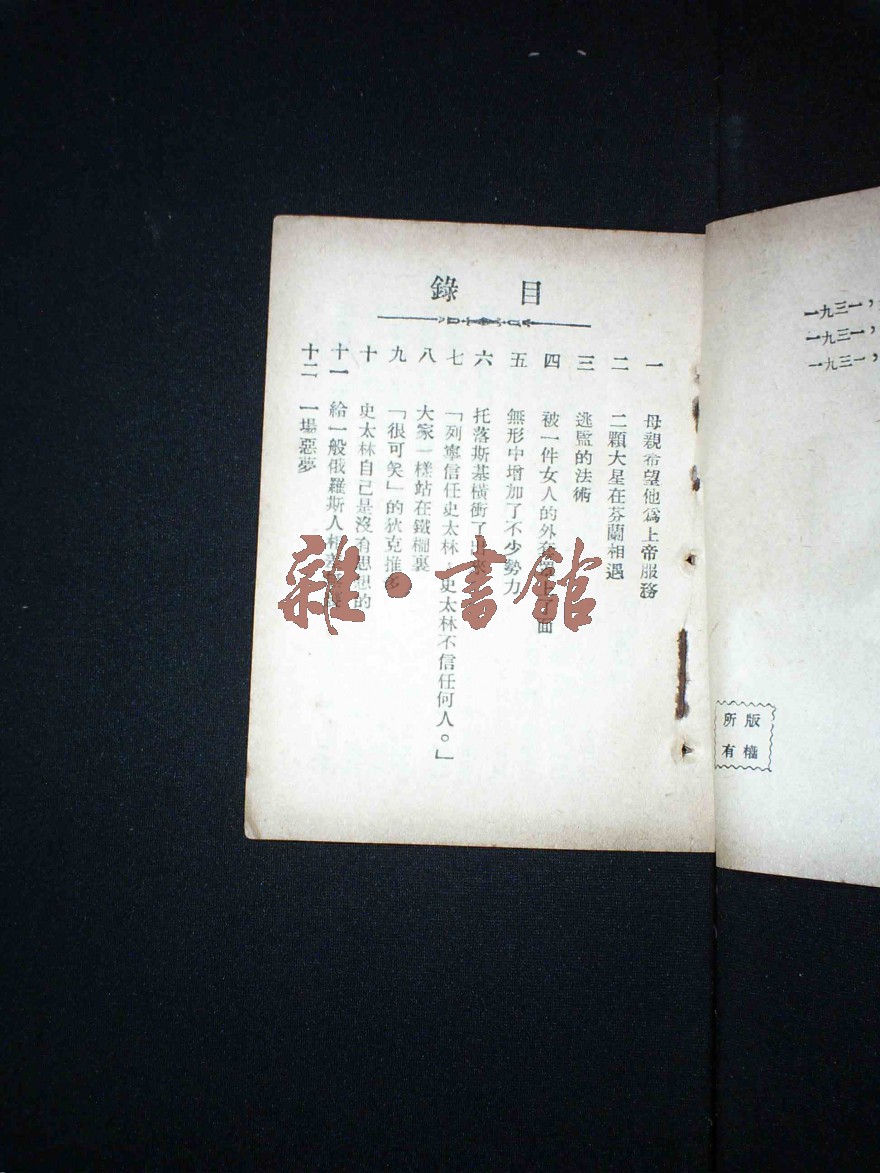 一九三一，
一九三一，
一九三一，
版權
所有
目錄
一 母親希望他爲上帝服務
二 二顆大星在芬蘭相遇
三 逃監的法術
四 被一件女人的外套 面
五 無形中增加了不少勢力
六 托落斯基橫衝了 來
七 「列寧信任史太林 史太林不信任何人。」
八 大家一樣站在鐵欄裏
九 「很可笑」的狄克推多
十 史太林自己是沒有思想的
十一 給一般俄羅斯人
十二 一場惡夢
雜·書館